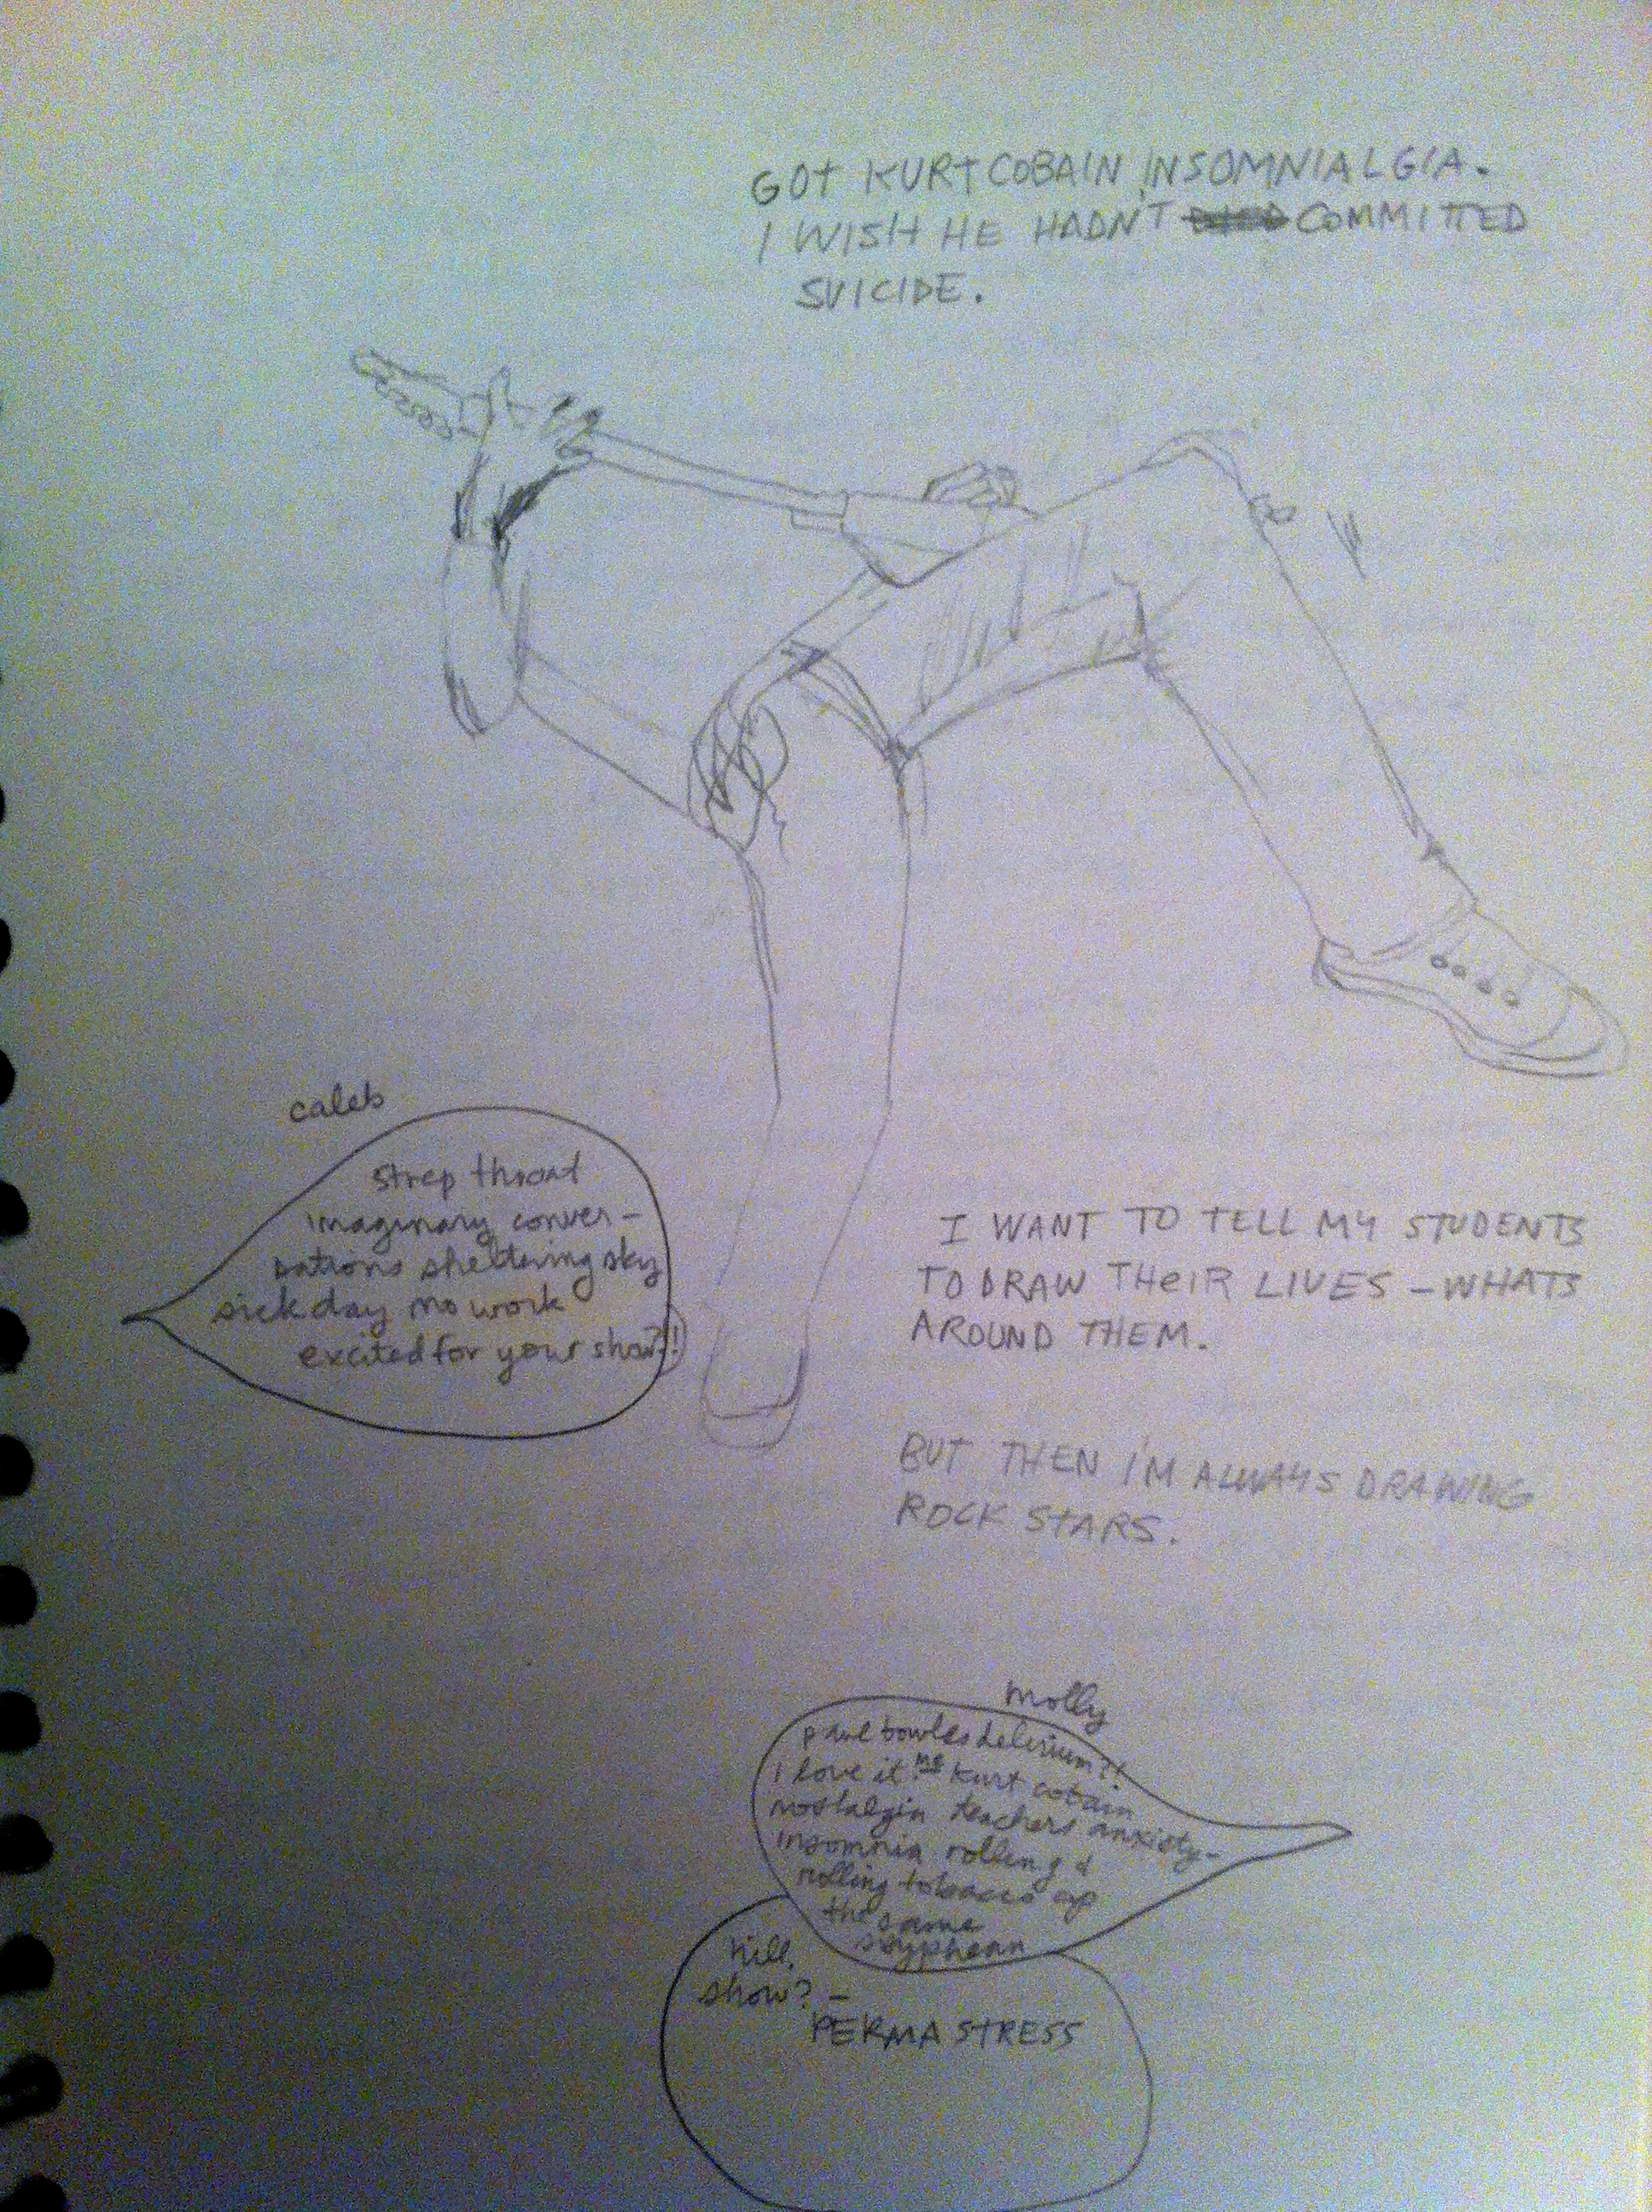 GOT KURT COBAIN INSOMNIALGIA.
I WISH HE HADN'T COMMITTED
SUICIDE.
caleb
strep throat
imaginary conver-
sations sheltering sky
sick day no work
excited for your show?!
I WANT TO TELL MY STUDENTS
TO DRAW THEIR LIVES - WHATS
AROUND THEM.
BUT THEN I'M ALWAYS DRAWING
ROCK STARS.
molly
paul bowles delerium?!
I love it. me kurt cobain
nostalgia teachers anxiety-
insomnia rolling &
rolling tobacco up
the same
sisyphean
hill.
show? -
PERMA STRESS